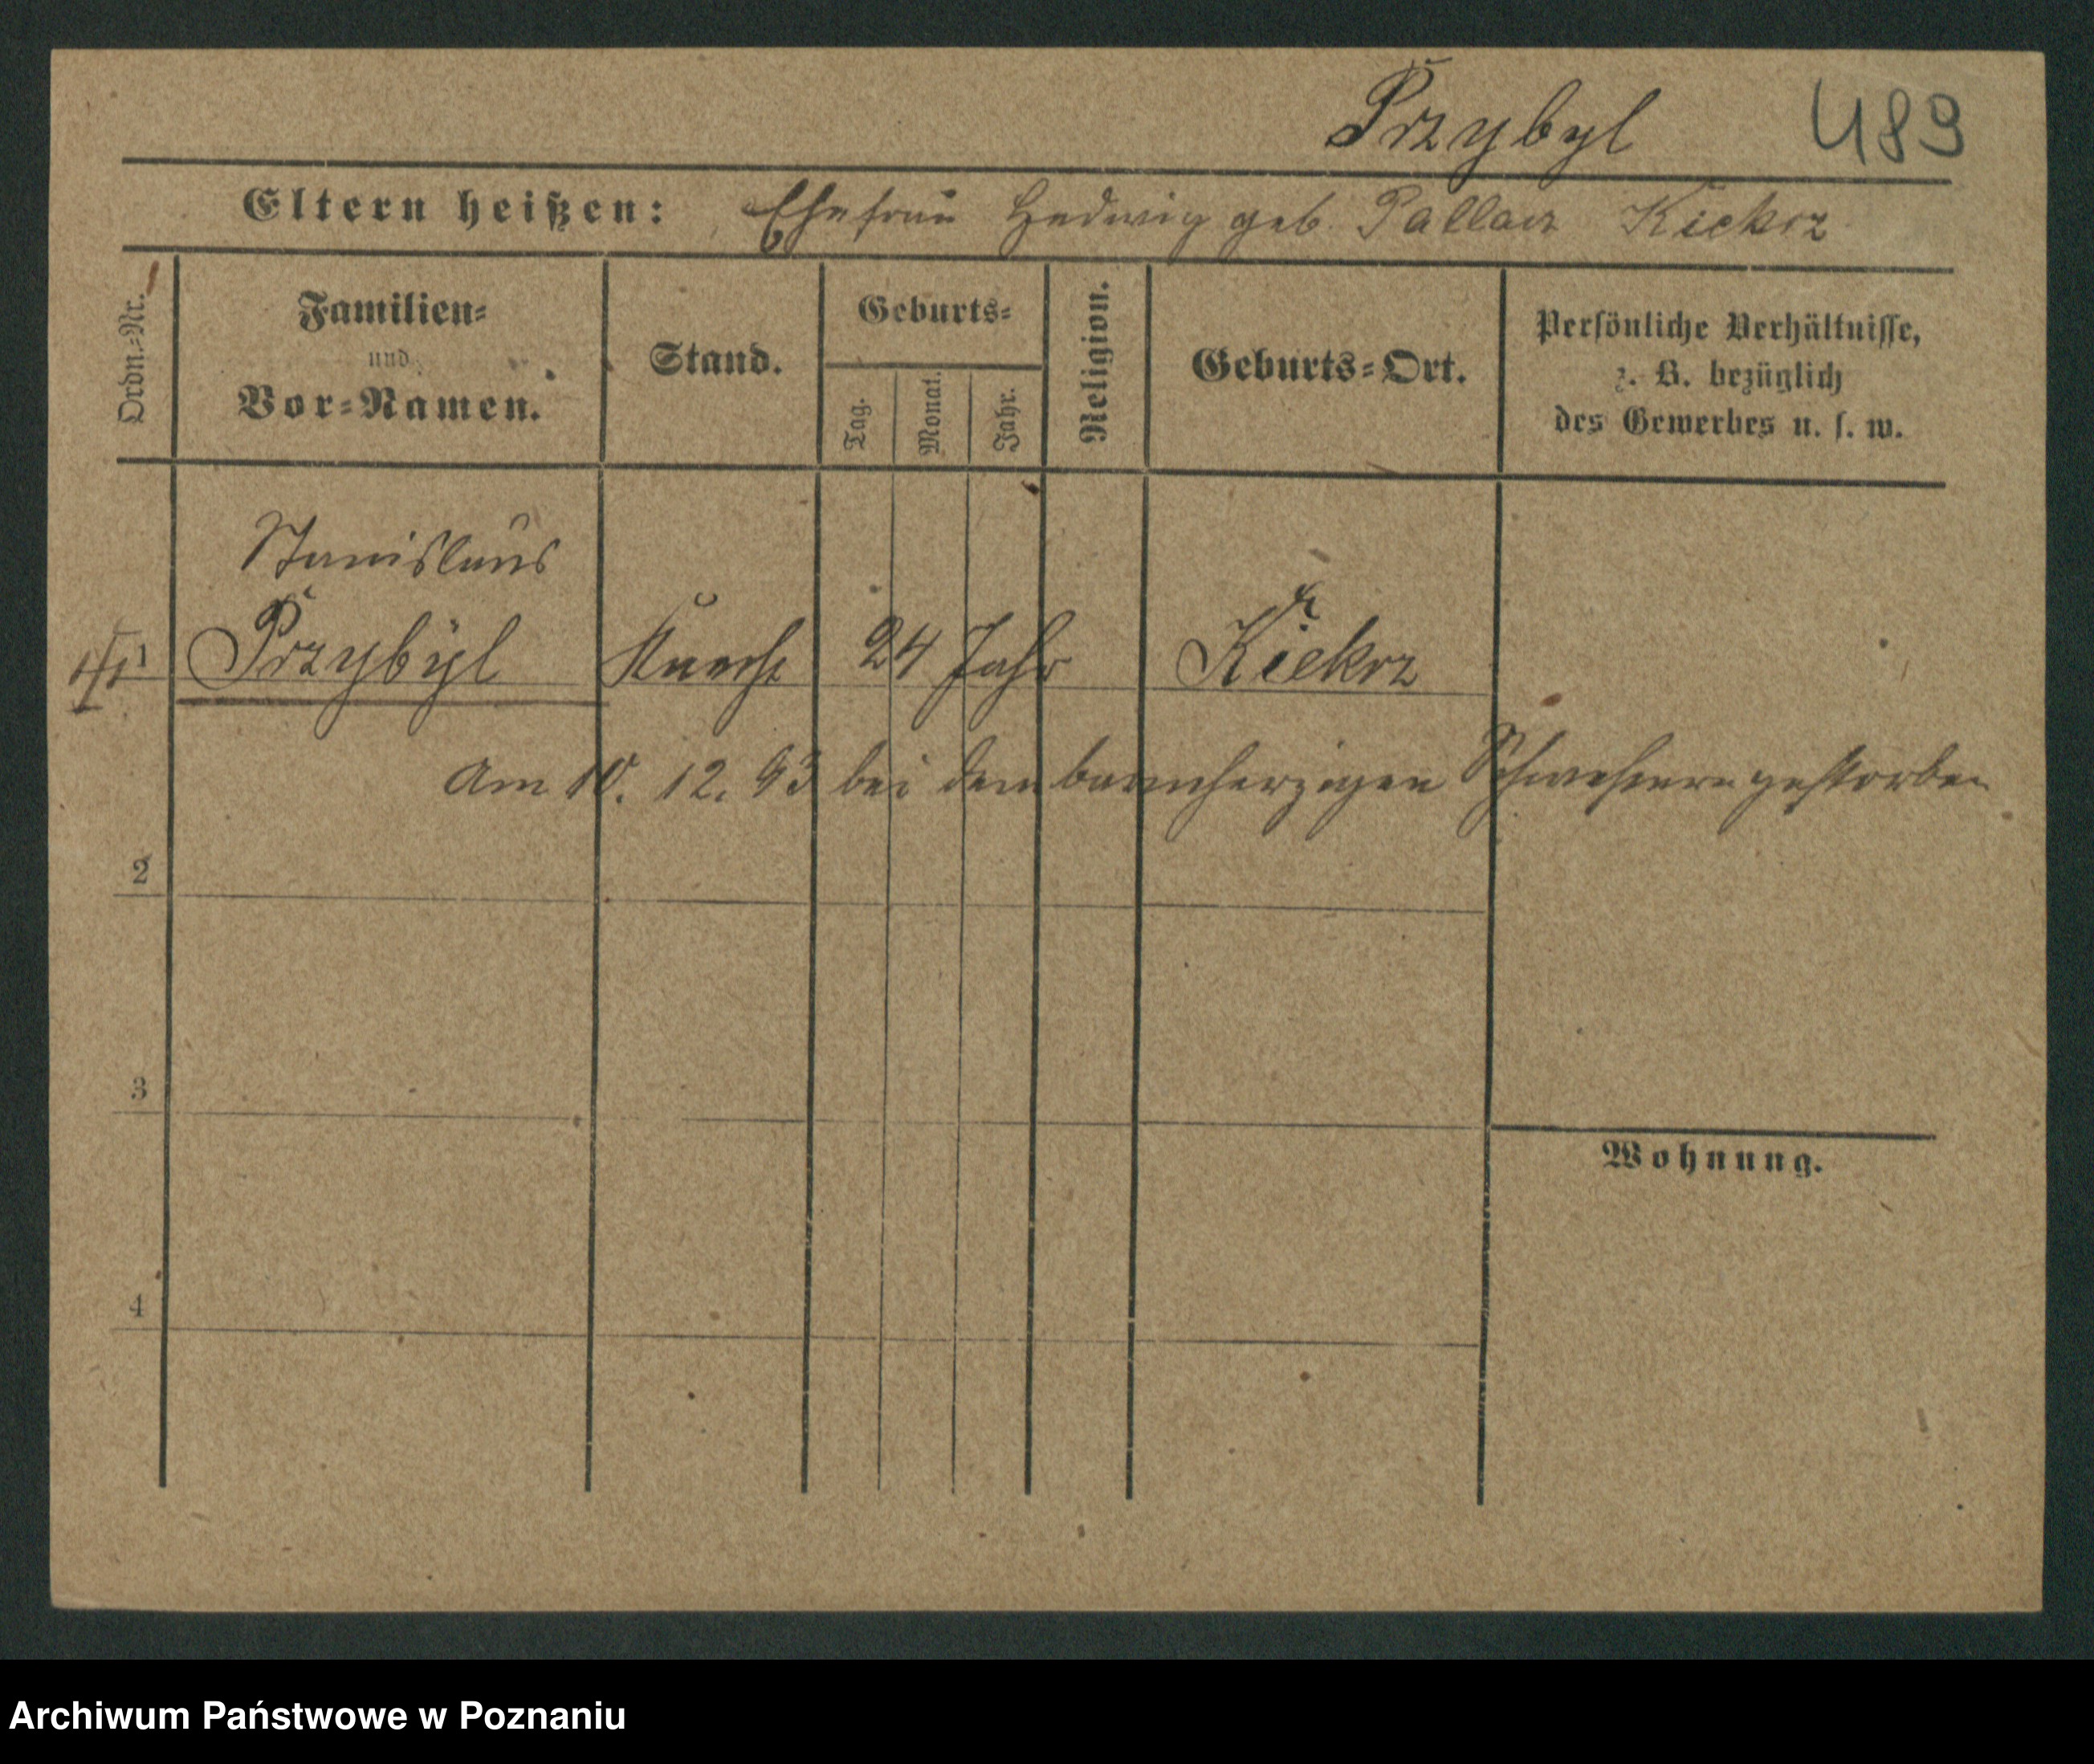 Przybyl 489
Eltern heißen: Ehefrau Hedwig geb. Kiekrz
Ordn.-Nr.
Familien-
und
Vor-Namen.
Stand.
Geburts-
Tag.
Monat.
Jahr.
Religion.
Geburts-Ort.
Persönliche Verhältnisse,
z. B. bezüglich
des Gewerbes u. s. w.
Stanislaus
1 Przybyl Knecht 24 Jahr Kiekrz
Am 10. 12. 93 bei den barmherzigen Schwestern gestorben
2
3
Wohnung.
4
Archiwum Państwowe w Poznaniu